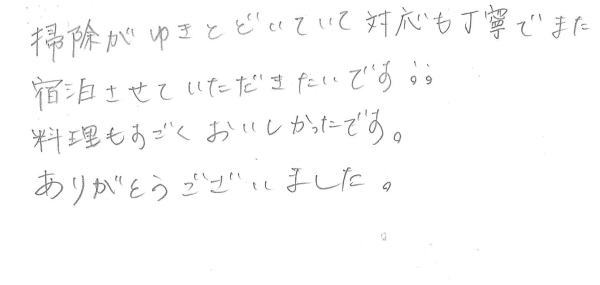 掃除がゆきとどいていて対応も丁寧でまた
宿泊させていただきたいです!!
料理もすごくおいしかったです。
ありがとうございました。